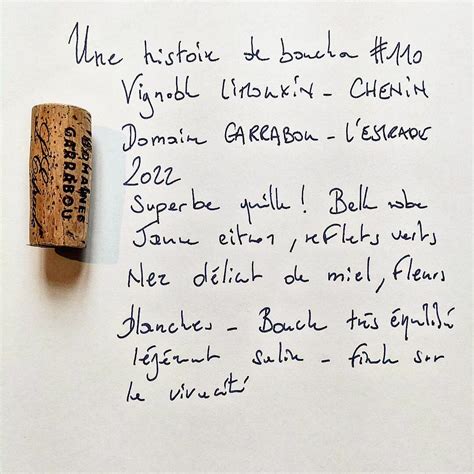 Une histoire de bouchon #110
Vignoble LIMOUXIN - CHENIN
Domaine GARRABOU - L'ESTRADE
2022
Superbe quille ! Belle robe
Jaune citron, reflets verts
Nez délicat de miel, fleurs
blanches - Bouche très équilibré
légèrement saline - finale sur
la vivacité
DOMAINE
GARRABOU